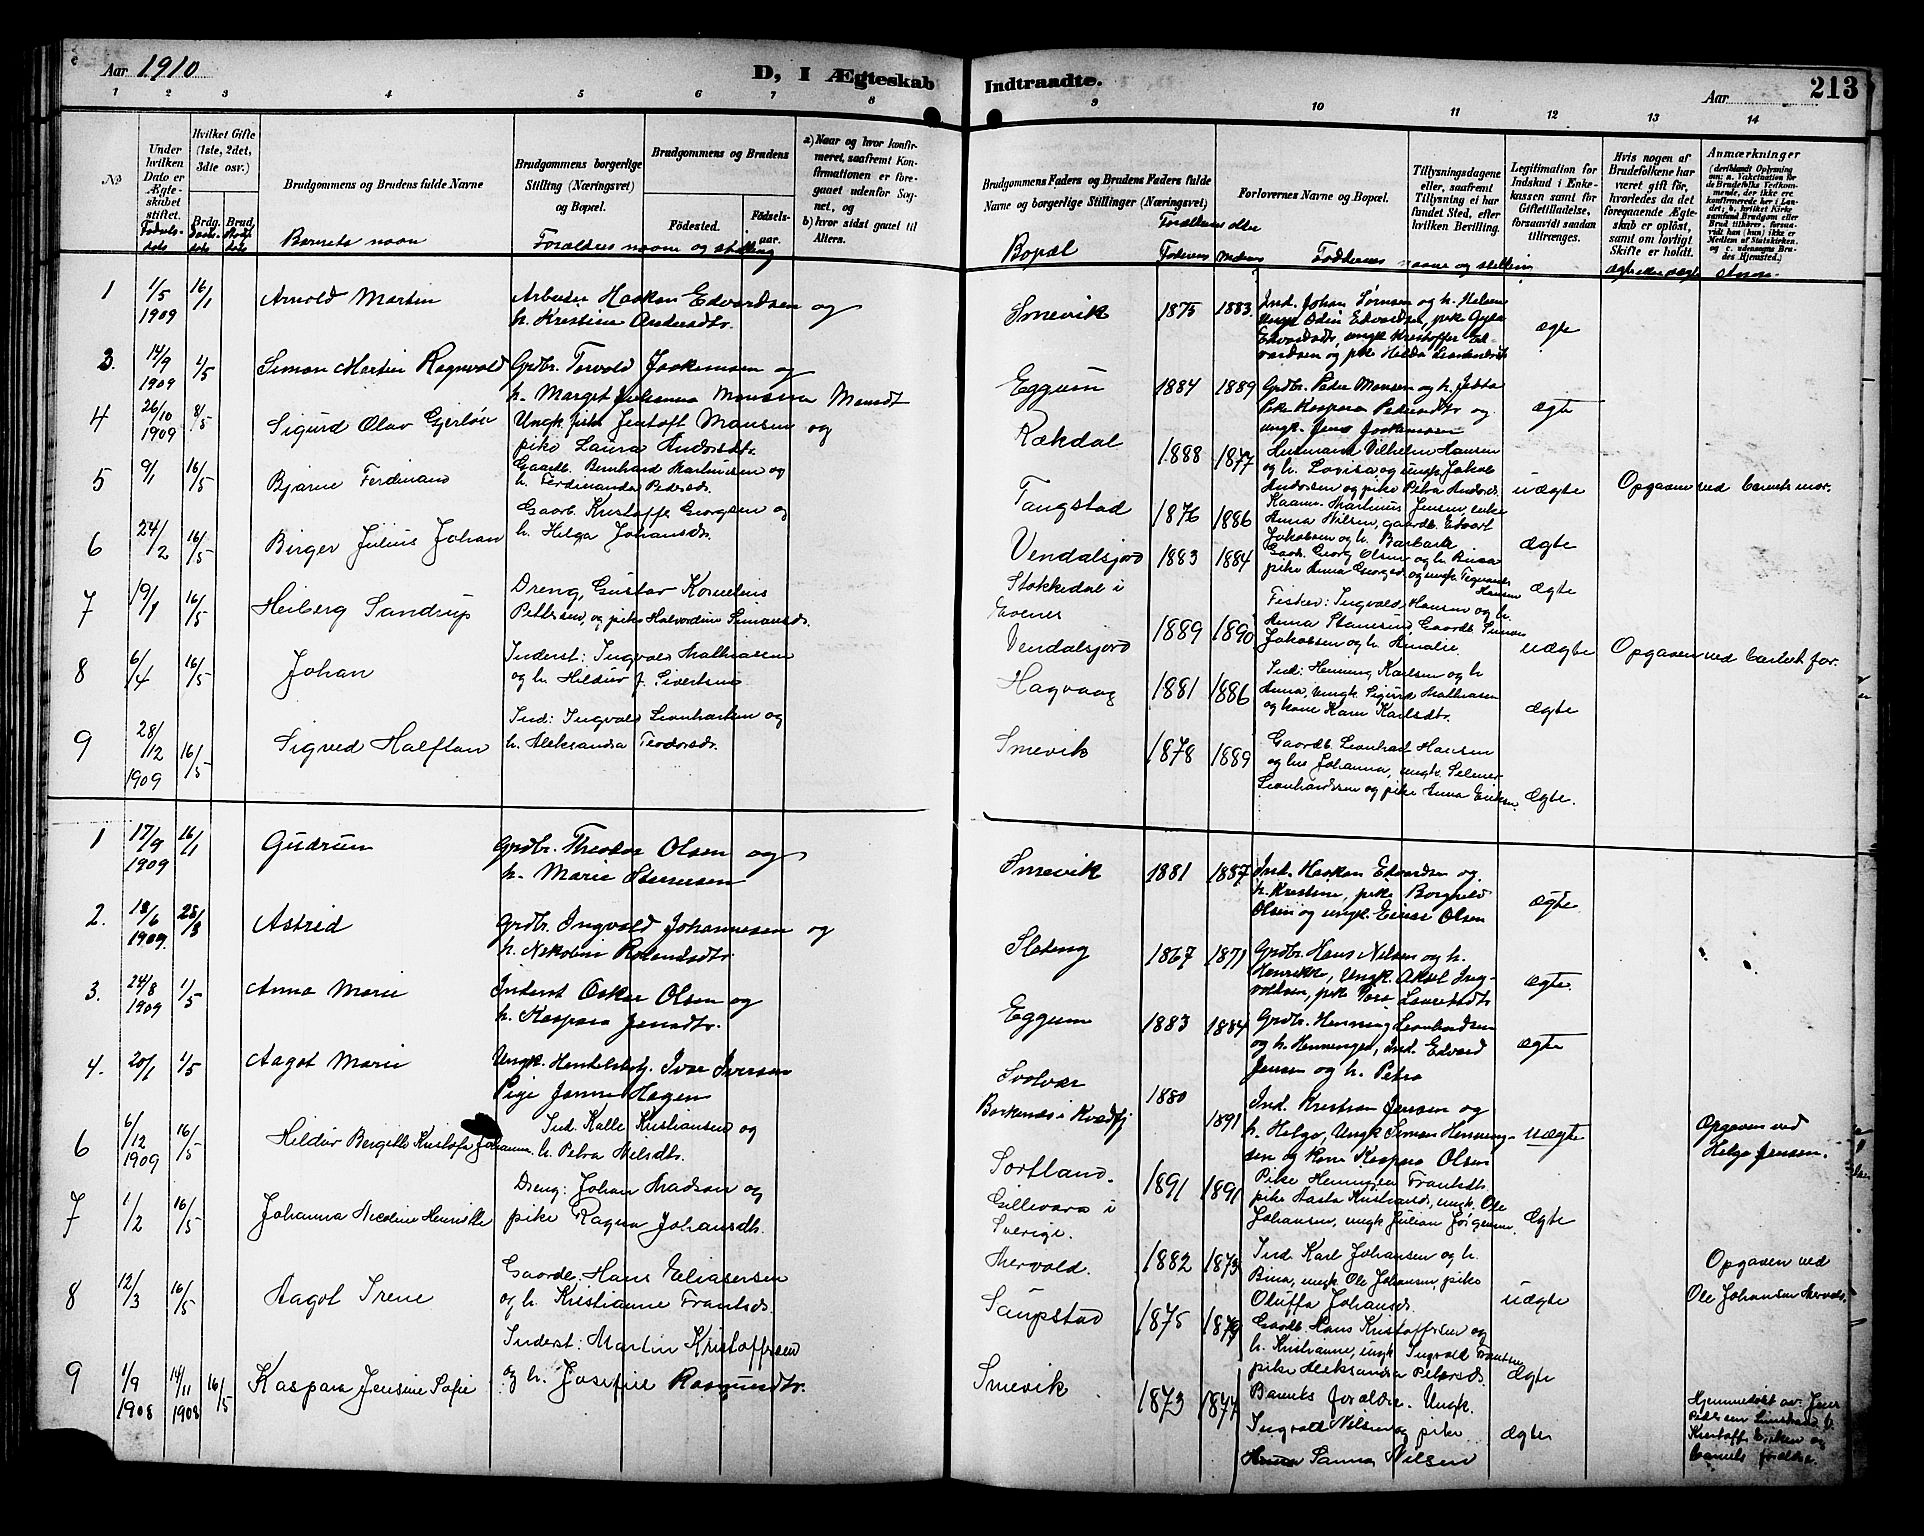 Aar 1910
D, I Ægteskab Indtraadte.
Aar
213
1 2 3 4 5 6 7 8 9 10 11 12 13 14
№
Under hvilken Dato er Ægteskabet stiftet.
Hvilket Gifte (1ste, 2det, 3die osv.)
Brdg. Brud.
Brudgommens og Brudens fulde Navne
Brudgommens borgerlige Stilling (Næringsvei) og Bopæl.
Brudgommens og Brudens
Fødested.
Fødselsaar.
a) Naar og hvor konfirmeret, saafremt Konfirmationen er foregaaet udenfor Sognet, og
b) hvor sidst gaaet til Alters.
Brudgommens Faders og Brudens Faders fulde Navne og borgerlige Stillinger (Næringsvei)
Forlovernes Navne og Bopæl.
Tillysningsdagene eller, saafremt Tillysning ei har fundet Sted, efter hvilken Bevilling.
Legitimation for Indskud i Enkekassen samt for Giftetilladelse, forsaavidt saadan tiltrænges.
Hvis nogen af Brudefolkene har været gift før, hvorledes da det foregaaende Ægteskab er opløst, samt om lovligt Skifte er holdt.
Anmærkninger
Barnets navn
Forældres navne og stilling
Bopæl
Forældrenes alder
Faderens Moderens
Faddernes navne og stilling
Anm.
1 1/5 1909 16/1 Arnold Martin
Arbeider Haakon Edvardsen og
h. Kristine Andersdtr.
Smevik 1875 1883
Ind. Johan Sørnsen og h. Helene
Edvardsdtr, ungk Kristoffer Ed-
vardsen og pike Hilda
ægte
3. 14/9 1909 4/5 Simon Martin Ragnvald
Grdbr. Torvald Joakimsen og
h. Marget Johanna Monsine Monsdt
Eggum 1884 1889
Grdbr. Peder Monsen og h.
Pike Kaspara Pedersdtr og
ungk. Jens Joakimsen
ægte
4 26/10 1909 8/5 Sigurd Olav Gjerløv
Ungk Jentoft Hansen og
pike Laura Andersdtr.
Rækdal 1888 1877
Vilhelm Hansen
og h. Lovisa og ungk Jakob
Andersen og pike Petra Andersdtr
uægte Opgaven ved barnets mor.
5 9/1 16/5 Bjarne Ferdinand
Gaardb. Bernhard Martinusen og
h. Ferdinanda Pedersdt.
Tangstad 1876 1886
Kaarm. Martinus Jensen, enke
Anna Nilsen, gaardb. Edvart
Jakobsen og h. Barbara
ægte
6 24/2 16/5 Birger Julius Johan
Gaarb. Kristoffer Georgsen og
h. Helga Johansdtr.
Vendalsjord 1883 1884
Gaarb. Georg Olsen og h.
pike Anna Georgsd og ungk
Hansen
ægte
7 19/1 16/5 Heiberg Sandrup
Dreng, Gustav Kornelius
Pettersen, og pike Halvardine Simonsdt.
Stokkedal i
Evenes
Vendalsjord 1889 1890
Fisker: Ingvald Hansen og h.
Anna Gaardb. Simon
Jakobsen og h. Amalie.
uægte Opgaven ved barnets far.
8 6/4 16/5 Johan
Inderst: Ingvald Mathiasen
og h. Hildur f. Sivertsen
Hagvaag 1881 1886
Ind: Henning Karlsen og h
Anna, ungk. Sigurd Mathiasen
og kone Karlsdtr.
ægte
9 28/12 1909 16/5 Sigved Halftan
Ind: Ingvald Leonhartsen og
h. Aleksandra Teodorsdr.
Smevik 1878 1889
Gaardb. Leonhart Hansen
og hus Johanna, ungk. Selmer
Leonhardsen og pike Anna Eriksen.
Ægte.
1 17/9 1909 16/1 Gudrun
Grdbr. Theodor Olsen og
h. Marie
Smevik 1881 1887
Ind. Haakon Edvardsen og
h. Kristine, pike Borghild
Olsen og ungk. Einar Olsen
ægte
2. 18/6 1909. 28/3 Astrid
Grdbr. Ingvald Johannesen og
h. Nekoline
Slæteng 1867 1871
Grdbr. Hans Nilsen og h.
Henrikke, Ungk. Aksel Ing-
valdsen, pike
ægte.
3. 24/8 1909 1/5 Anna Marie
Inderst Oskar Olsen og
h. Kaspara Jensdtr.
Eggum 1883 1884
Grdbr. Henning Leonhardsen
og h. Henninges, Ind. Edvard
Jensen og h. Petra
ægte
4. 20/1 1/5 Aagot Marie
Ungk. Ivar Iversen
Pige Jenne Hagen
Svolvær
Borkenæs i Kvædfj 1880 1891
Ind. Kristian Jensen og
h. Helga, Ungk Simon Henning-
sen og kone Kaspara Olsen
uægte
Opgaven ved
Helga Jensen.
6 6/12 1909 16/5 Hildur Bergitte Kristofa Johanne
Ind. Kalle Kristiansen og
h. Petra Nilsdtr.
Sortland. 1891 1891
Pike Henninga Frantsdt.
pike Aasta Kristiansd, ungk. Ole
Johansen, ungk Julian Jørgensen.
ægte
7 1/2 16/5 Johanna Nicoline Henritte
Dreng: Johan Madsen og
pike Ragna Johansdtr.
Gillevara i
Sverige.
1882 1873
Ind. Karl Johansen og h.
Bina, ungk. Ole Johansen, pike
Oluffa Johansd.
uægte
Opgaven ved
Ole Johansen
8 12/3 16/5 Aagot Irene
Gaardb. Hans Eliasersen
og h. Kristianne Frantsdr.
Saupstad 1875 1879
Gaardb. Hans Kristoffersen og
h. Kristianne, ungk. Ingvald Frantsen
pike Aleksandra Petersd.
ægte
9 1/9 1908 14/11 1908 16/5 Kaspara Jensine Sofie
Inderst: Martin Kristoffersen
og h. Josefine Rasmusdtr.
Smevik 1873 1877
Barnets forældre. Ungk.
Ingvald Nilsen og pike
Sanna Nilsen
ægte
Hjemmedøbt av Jens
Pedersen
Kristoffer Eriksen og
barnets forældre.